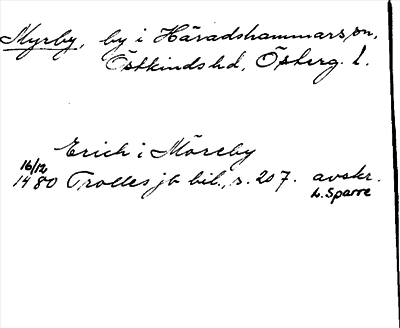 Myrby, by i Häradshammars sn,
Östkinds hd, Österg. l.
Erich i Möreby
16/12
1480 Trolles jb bil., s. 207. avskr.
L. Sparre